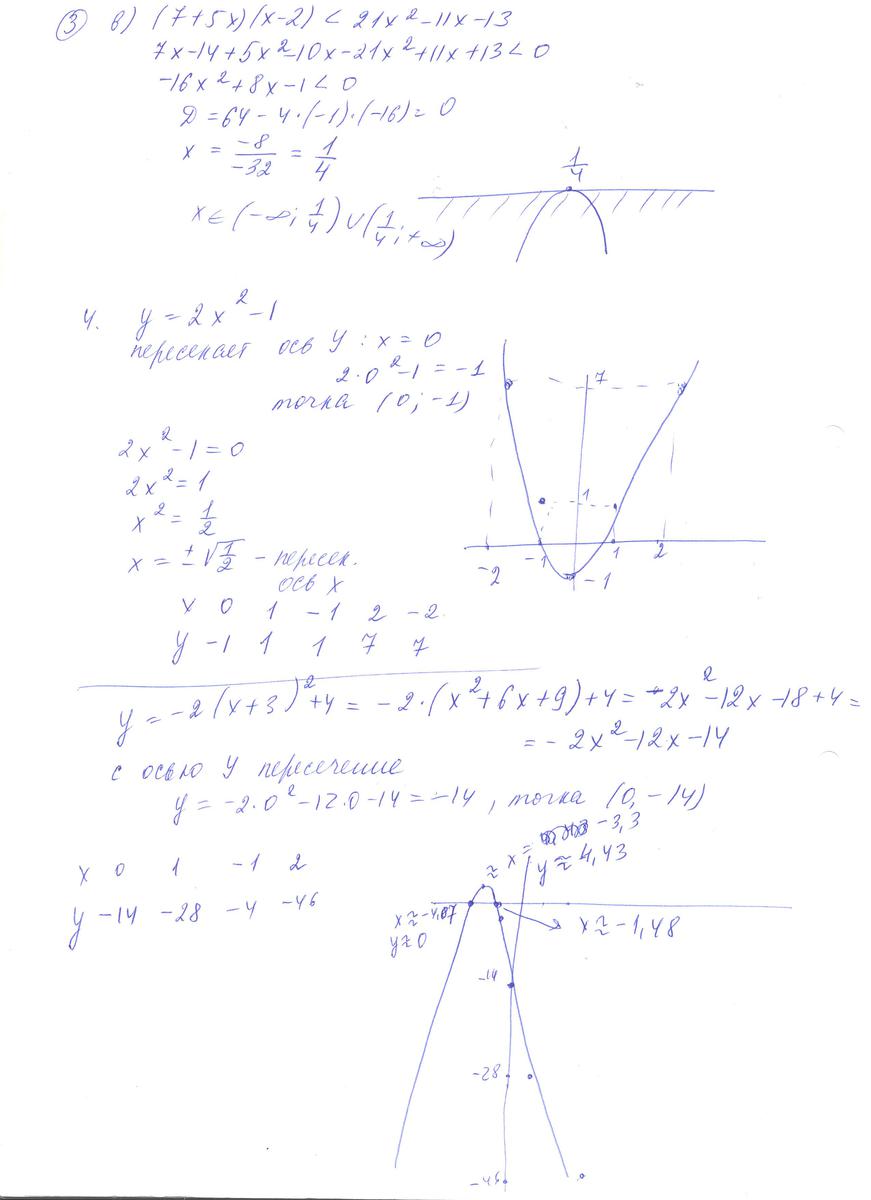 ③ в) (7+5x)(x-2) < 21x²-11x-13
7x-14+5x²-10x-21x²+11x+13<0
-16x²+8x-1<0
Д=64-4·(-1)·(-16)=0
x = -8/-32 = 1/4
1/4
x∈(-∞; 1/4)∪(1/4; +∞)
4. y=2x²-1
пересекает ось y : x=0
2·0²-1=-1
точка (0; -1)
2x²-1=0
2x²=1
x²=1/2
x=±√1/2 - пересек.
ось x
x 0 1 -1 2 -2
y -1 1 1 7 7
7
1
-2 -1 1 2
-1
y=-2(x+3)²+4=-2·(x²+6x+9)+4=-2x²-12x-18+4=
=-2x²-12x-14
с осью y пересечение
y=-2·0²-12·0-14=-14, точка (0,-14)
x 0 1 -1 2
y -14 -28 -4 -46
x≈ -3,3
y≈4,43
x≈-4,07
y≈0
x≈-1,48
-14
-28
-46